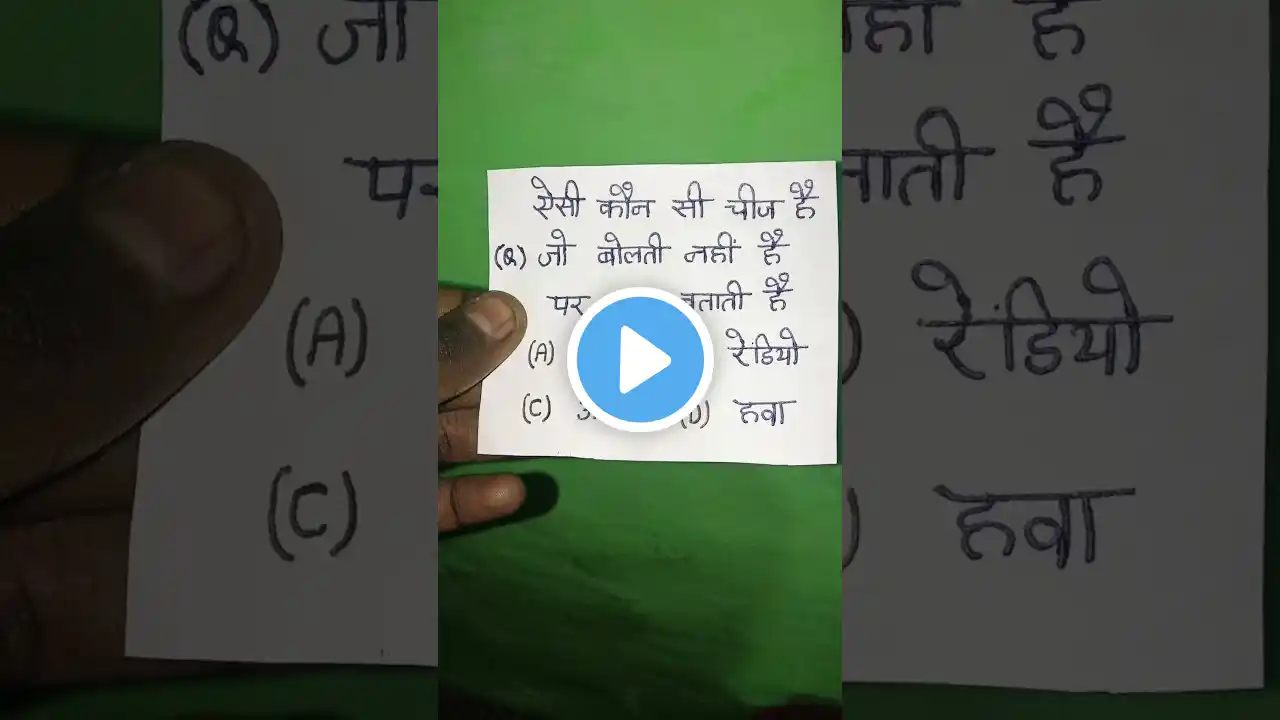 ऐसी कौन सी चीज है
(Q) जो बोलती नहीं है
पर बताती है
(A) रेडियो
(C) (D) हवा